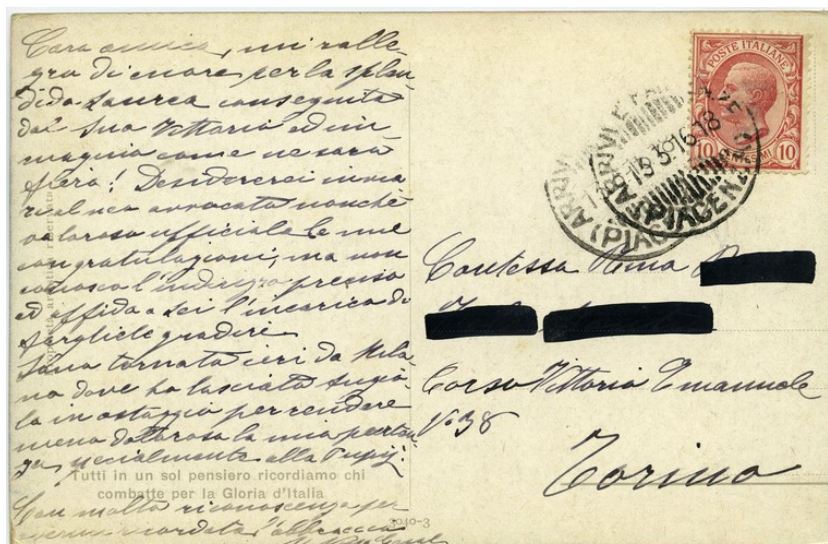 Cara amica, mi ralle-
gro di cuore per la splen-
dida Laurea conseguita
dal Suo Vittorio ed im-
magino come ne sarà
fiera! Desidererei invia
re al neo avvocato nonchè
valoroso ufficiale le mie
congratulazioni, ma non
conosco l'indirizzo preciso
ed affido a Lei l'incarico di
fargliele gradire
Sono tornata ieri da Mila-
no dove ho lasciato
la in ostaggio per rendere
meno dolorosa la mia parten-
za, specialmente alla
Tutti in un sol pensiero ricordiamo chi
combatte per la Gloria d'Italia
Con molta riconoscenza per
avermi ricordata l'abbraccio
2010-3
POSTE ITALIANE
10 10
ARRIVI E PARTENZE
3.16 18
(PIACENZA)
Contessa
Corso Vittorio Emanuele
No 38
Torino